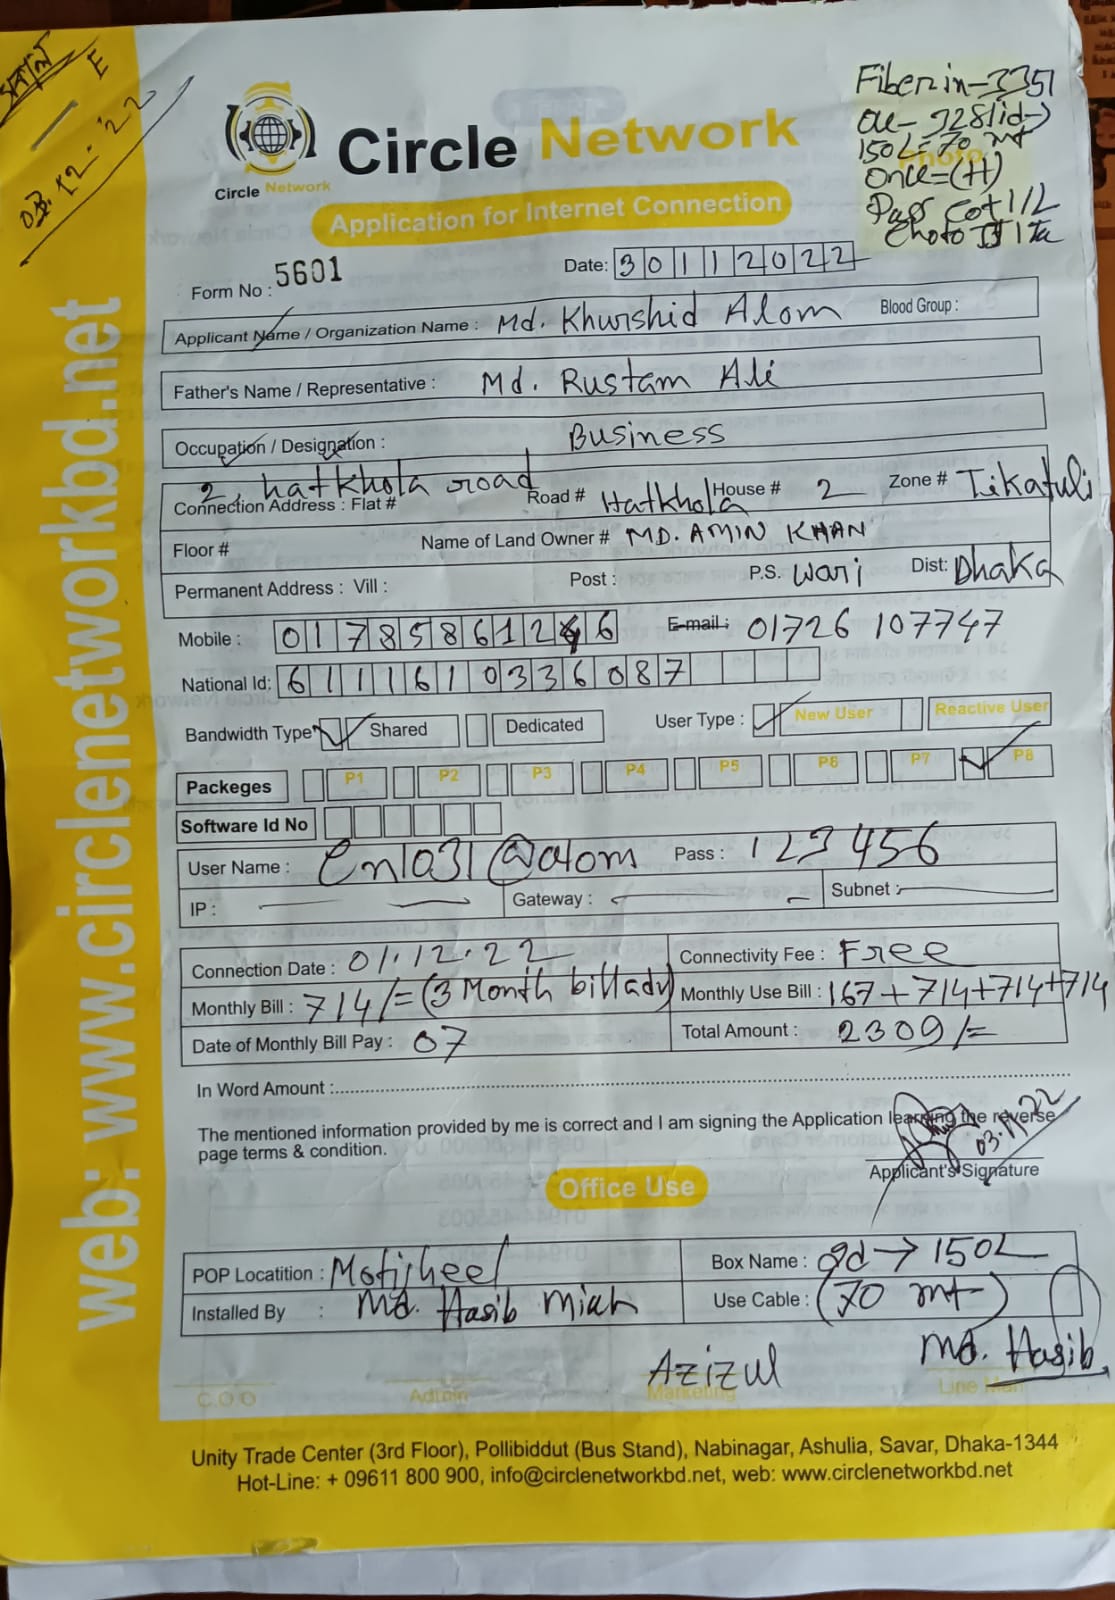 E
03.12.'22
Fiber in-3351
150L= 70 mt
Onu=(H)
Circle Network
Circle Network
Application for Internet Connection
Form No : 5601
Date: 30112022
Applicant Name / Organization Name : Md. Khurshid Alom Blood Group :
Father's Name / Representative : Md. Rustam Ali
Occupation / Designation : Business
2, hatkhola road
Connection Address : Flat # Road # Hatkhola House # 2 Zone # Tikatuli
Floor # Name of Land Owner # MD. AMIN KHAN
Permanent Address : Vill : Post : P.S. Wari Dist: Dhaka
Mobile : 01785861246 E-mail : 01726 107747
National Id: 6111610336087
Bandwidth Type Shared Dedicated User Type : New User Reactive User
Packeges P1 P2 P3 P4 P5 P6 P7 P8
Software Id No
User Name : Cn1031@alom Pass : 123456
IP : Gateway : Subnet :
Connection Date : 01.12.22 Connectivity Fee : Free
Monthly Bill : 714/= (3 Month bill adv) Monthly Use Bill : 167+714+714+714
Date of Monthly Bill Pay : 07 Total Amount : 2309/=
In Word Amount :
The mentioned information provided by me is correct and I am signing the Application learning the reverse
page terms & condition.
Applicant's Signature
Office Use
POP Locatition : Motijheel Box Name : gd→150L
Installed By : Md. Hasib Miah Use Cable : (70 mt)
Azizul Md. Hasib
C.O.O Admin Marketing Line Man
Unity Trade Center (3rd Floor), Pollibiddut (Bus Stand), Nabinagar, Ashulia, Savar, Dhaka-1344
Hot-Line: + 09611 800 900, info@circlenetworkbd.net, web: www.circlenetworkbd.net
web: www.circlenetworkbd.net